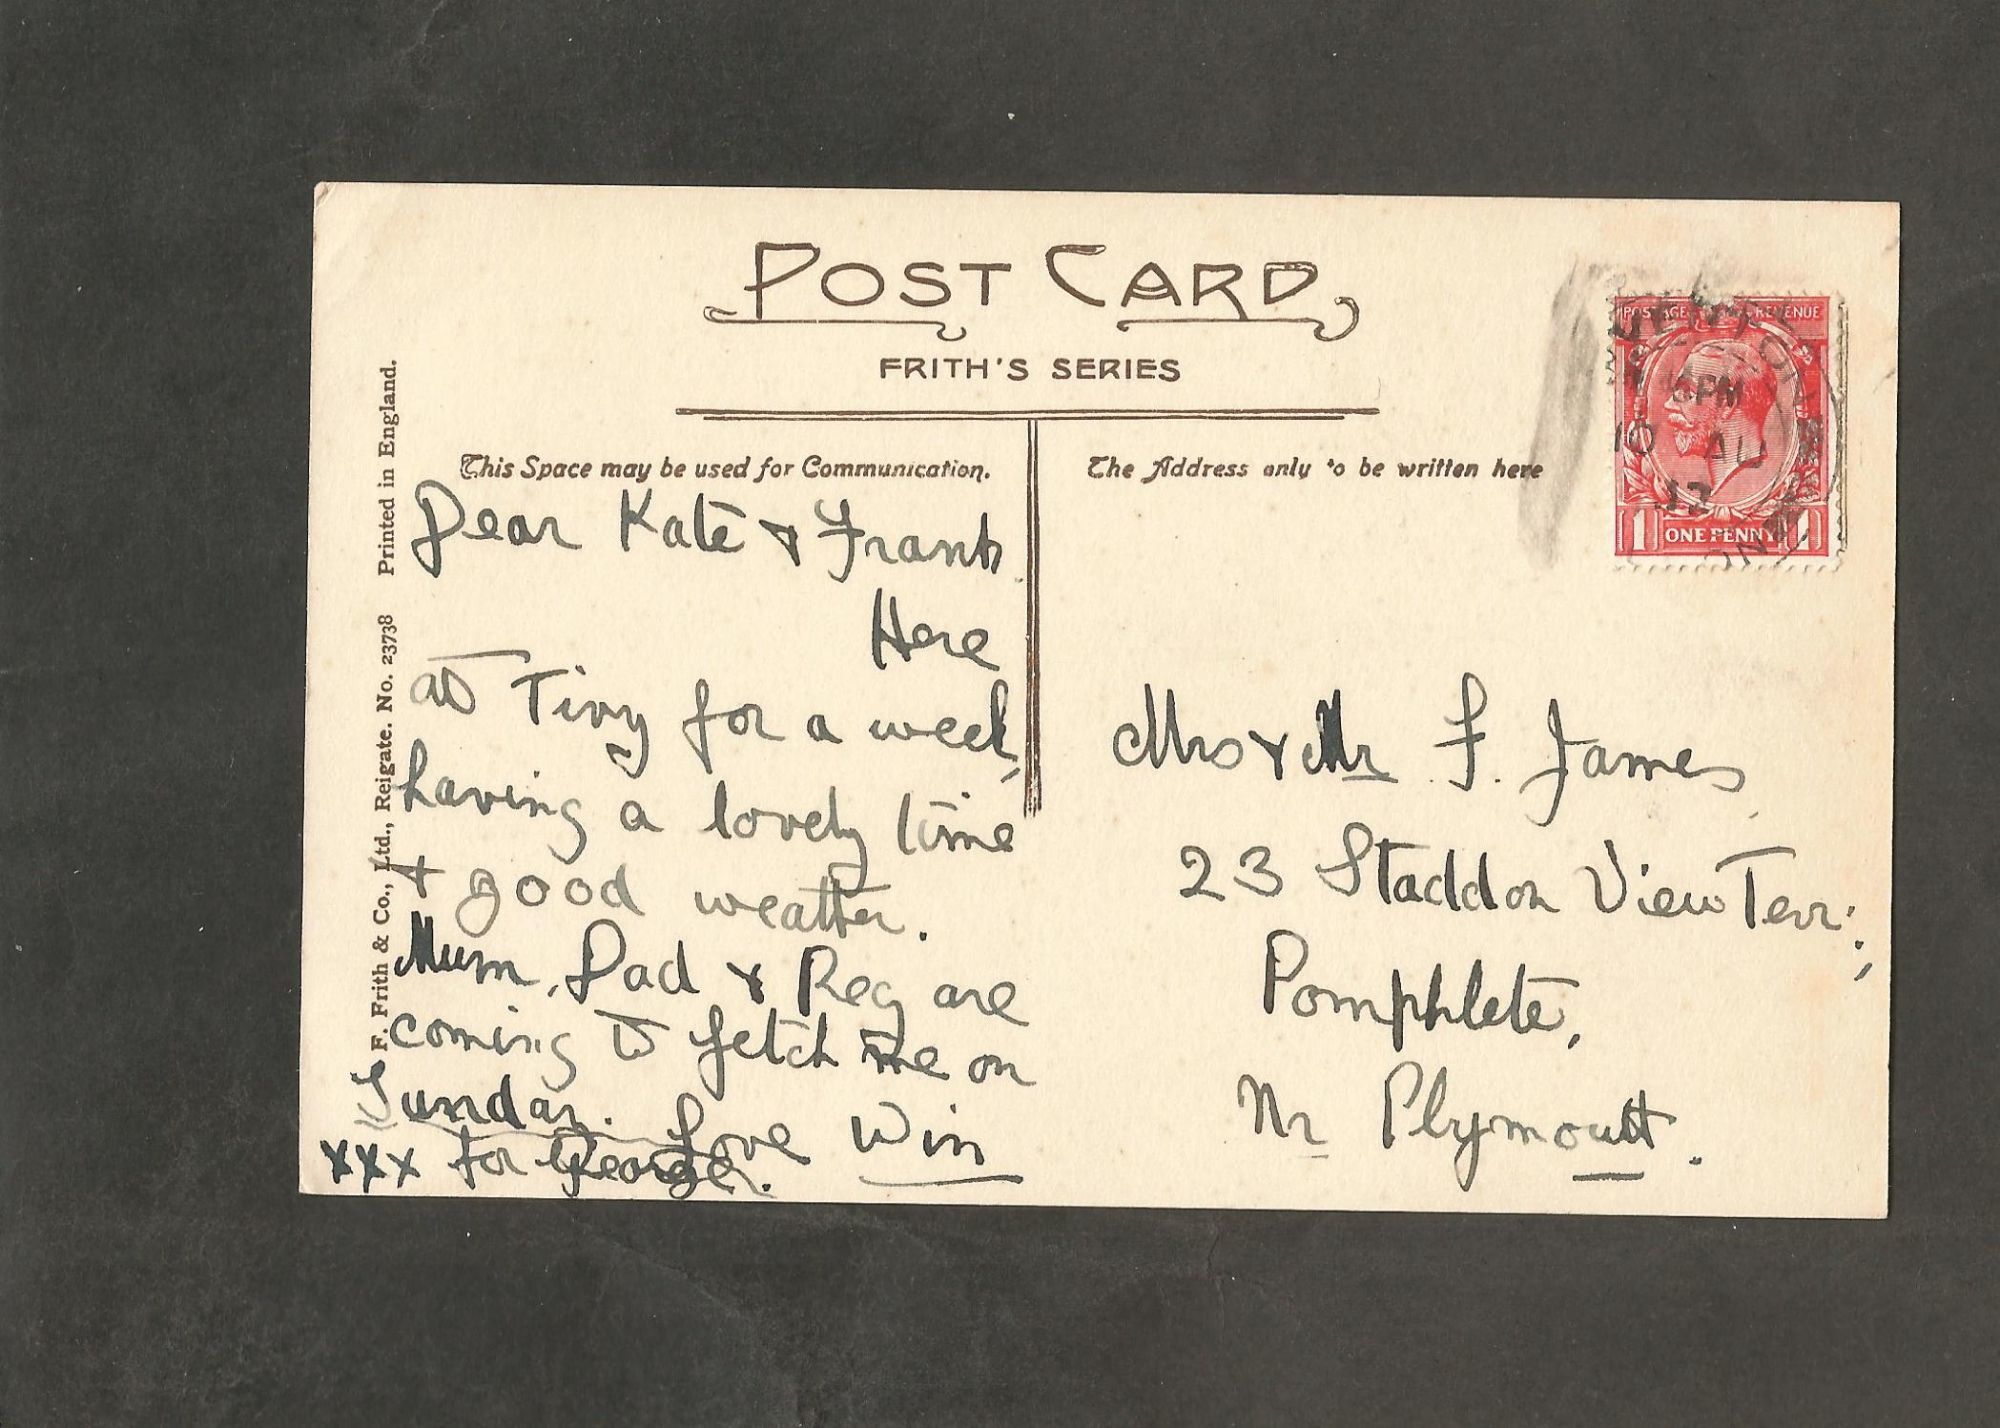 POST CARD
FRITH'S SERIES
This Space may be used for Communication.
The Address only to be written here
F. Frith & Co., Ltd., Reigate. No. 23738 Printed in England.
Dear Kate & Frank
Here
at Tivy for a week,
having a lovely time
+ good weather.
Mum, Dad & Reg are
coming to fetch me on
Sunday. Love Win
xxx for George.
Mrs & Mr F. James,
23 Staddon View Terr:,
Pomphlete,
Nr Plymouth.
POSTAGE REVENUE
6PM
10 AU
32
1 ONE PENNY 1